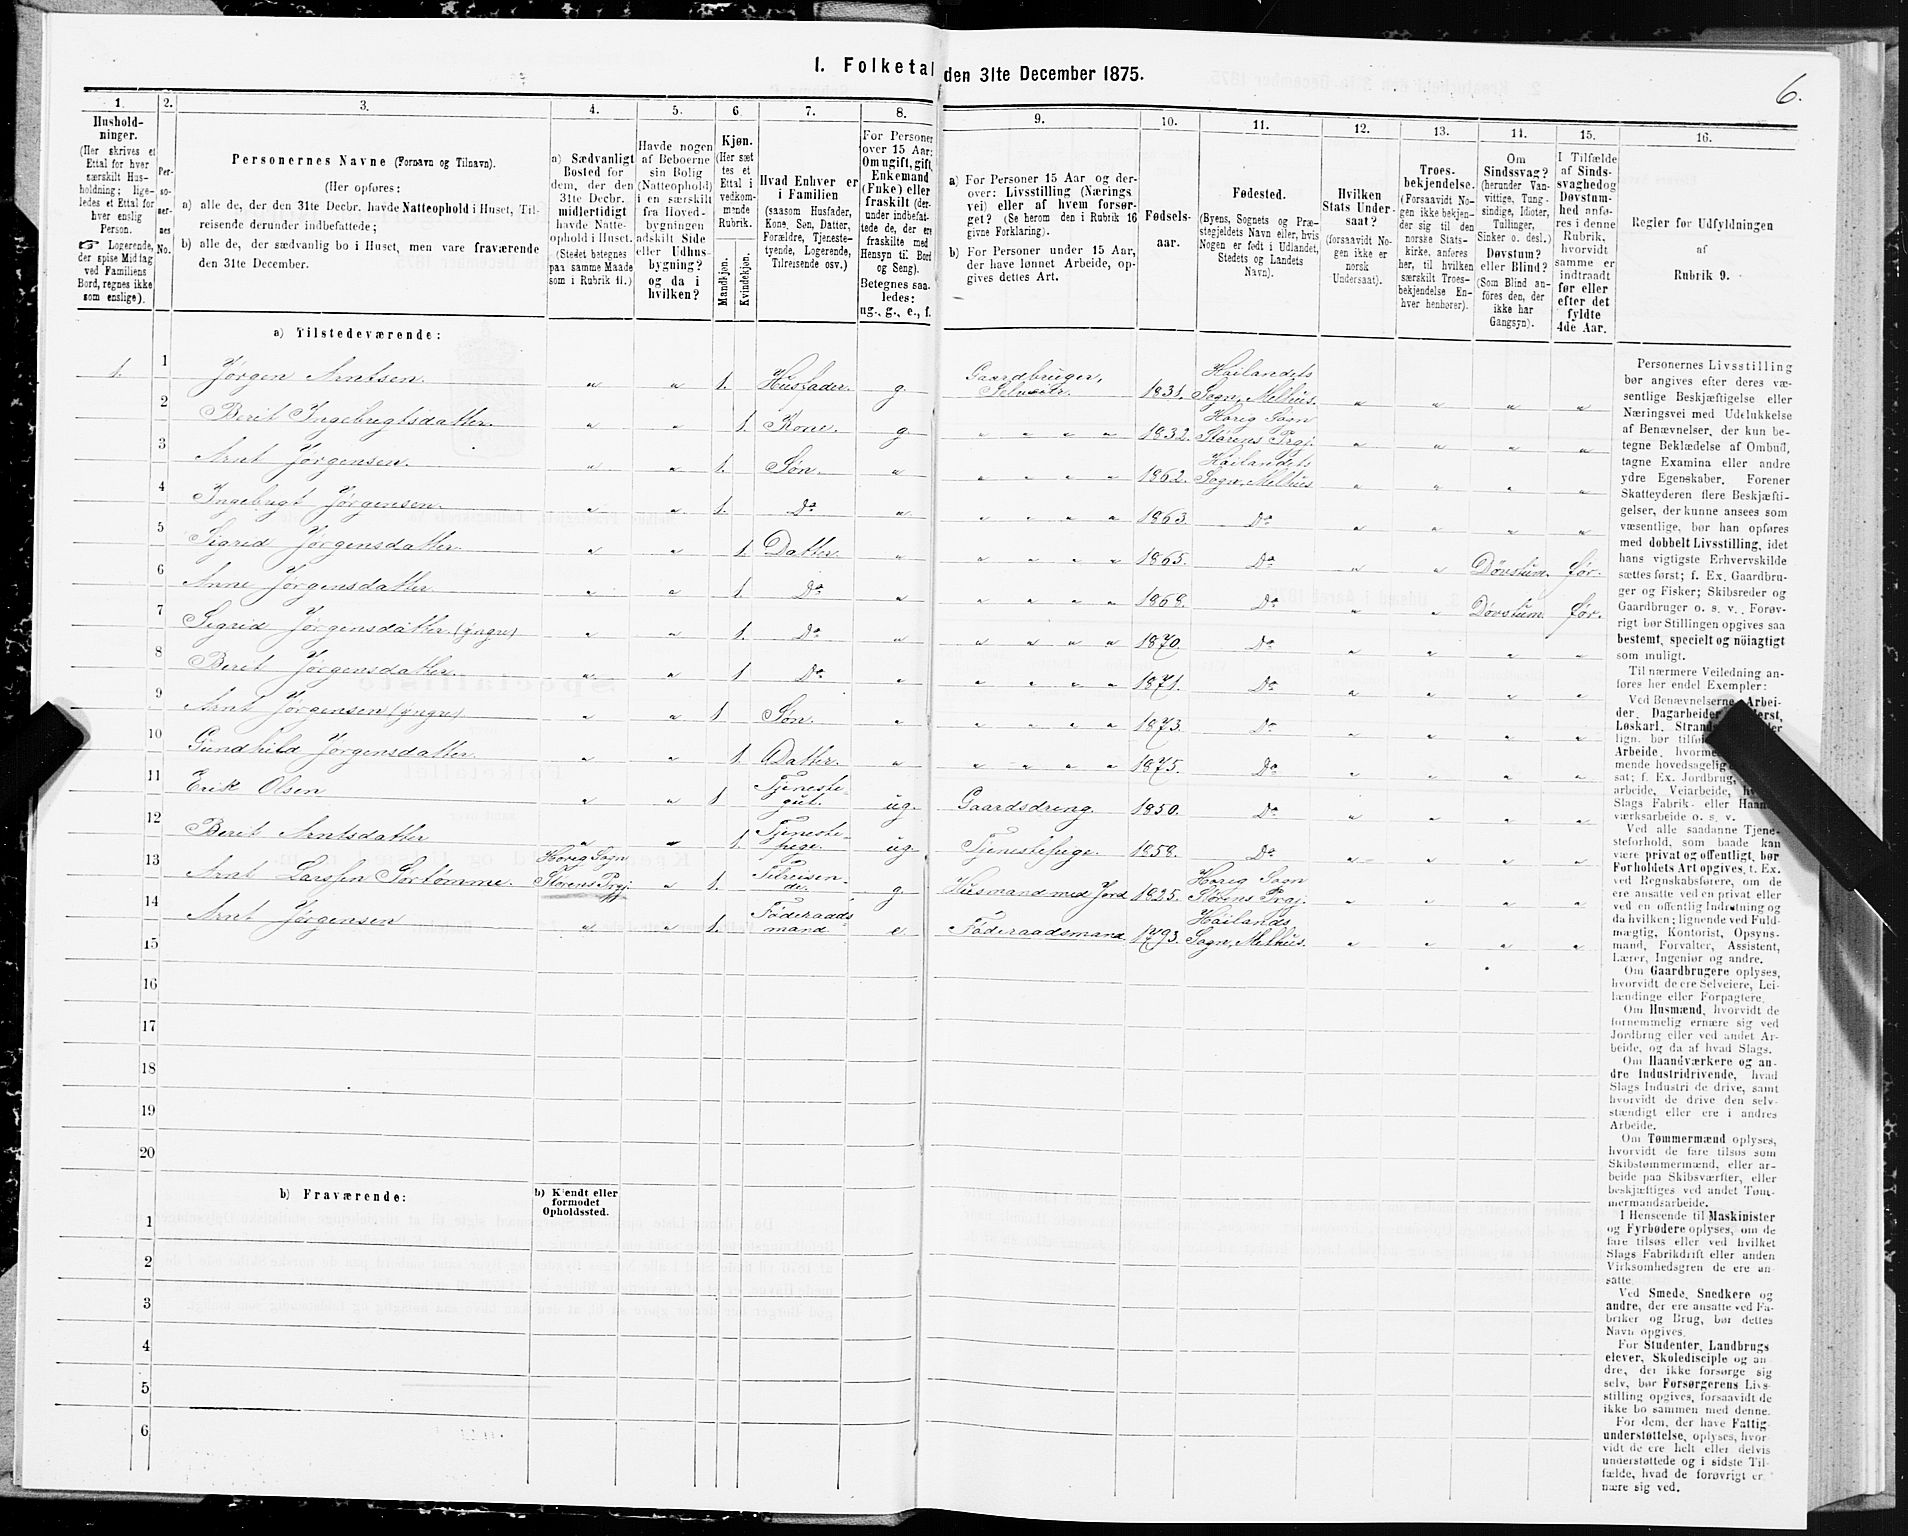 I. Folketal den 31te December 1875.
6.
1. 2. 3. 4. 5. 6 7. 8. 9. 10. 11. 12. 13. 14. 15. 16.
Hushold-
ninger.
(Her skrives et
Ettal for hver
særskilt Hus-
holdning; lige-
ledes et Ettal for
hver enslig
Person.
Logerende,
der spise Middag
ved Familiens
Bord, regnes ikke
som enslige).
Per-
so-
ner-
nes
No.
Personernes Navne (Fornavn og Tilnavn).
(Her opføres:
a) alle de, der den 31te Decbr. havde Natteophold i Huset, Til-
reisende derunder indbefattede;
b) alle de, der sædvanlig bo i Huset, men vare fraværende
den 31te December.
a) Sædvanligt
Bosted for
dem, der den
31te Decbr.
midlertidigt
havde Natte-
ophold i Huset.
(Stedet betegnes
paa samme Maade
som i Rubrik 11.)
Havde nogen
af Beboerne
sin Bolig
(Natteophold)
i en særskilt
fra Hoved-
bygningen
adskilt Side
eller Udhus-
bygning?
og da i
hvilken?
Kjøn.
(Her sæt
tes et
Ettal i
vedkom-
mende
Rubrik.
Mandkjøn.
Kvindekjøn.
Hvad Enhver er
i Familien
(saasom Husfader,
Kone, Søn, Datter,
Forældre, Tjeneste-
tyende, Logerende,
Tilreisende osv.)
For Personer
over 15 Aar:
Om ugift, gift,
Enkemand
(Enke) eller
fraskilt (der-
under indbefat-
tede de, der ere
fraskilte med
Hensyn til Bord
og Seng).
Betegnes saa-
ledes:
ug., g., e., f.
a) For Personer 15 Aar og der-
over: Livsstilling (Nærings
vei) eller af hvem forsør-
get? (Se herom den i Rubrik 16
givne Forklaring).
b) For Personer under 15 Aar,
der have lønnet Arbeide, op-
gives dettes Art.
Fødsels-
aar.
Fødested.
(Byens, Sognets og Præ-
stegjeldets Navn eller, hvis
Nogen er født i Udlandet,
Stedets og Landets
Navn).
Hvilken
Stats Under-
saat?
(forsaavidt No-
gen ikke er
norsk
Undersaat).
Troes-
bekjendelse.
(Forsaavidt No-
gen ikke bekjen-
der sig til den
norske Stats-
kirke, anføres
her, til hvilken
særskilt Troes-
bekjendelse En-
hver henhører).
Om
Sindssvag?
(herunder Van-
vittige, Tung-
sindige, Idioter,
Tullinger,
Sinker o. desl.)
Døvstum?
eller Blind?
(Som Blind an-
føres den, der
ikke har
Gangsyn).
I Tilfælde
af Sinds-
svaghed og
Døvstum-
hed anfø-
res i denne
Rubrik,
hvorvidt
samme er
indtraadt
før eller
efter det
fyldte
4de Aar.
Regler for Udfyldningen
af
Rubrik 9.
a) Tilstedeværende:
1. 1 Jørgen Arntsen. „ „ 1. Husfader. g. Gaardbruger, Selveier. 1831. Hailandets Sogn, Melhus. „ „ „ „
2 Berit Ingebrigtsdatter. „ „ 1. Kone. g. „ „ „ „ 1832. Horig Sogn Størens Prgj. „ „ „ „
3 Arnt Jørgensen. „ „ 1. Søn. „ „ „ „ „ 1862. Hailandets Sogn, Melhus. „ „ „ „
4 Ingebrigt Jørgensen. „ „ 1. Do „ „ „ „ „ 1863. Do „ „ „ „
5 Sigrid Jørgensdatter. „ „ 1. Datter. „ „ „ „ „ 1865. Do „ „ Døvstum. før.
6 Anne Jørgensdatter. „ „ 1. Do „ „ „ „ „ 1868. Do „ „ Døvstum. før.
7 Sigrid Jørgensdatter (yngre) „ „ 1. Do „ „ „ „ „ 1870. Do „ „ „ „
8 Berit Jørgensdatter. „ „ 1 Do „ „ „ „ „ 1871. Do „ „ „ „
9 Arnt Jørgensen (yngre). „ „ 1 Søn. „ „ „ „ „ 1873. Do „ „ „ „
10 Gundhild Jørgensdatter. „ „ 1. Datter. „ „ „ „ „ 1875. Do „ „ „ „
11 Erik Olsen „ „ 1 Tjeneste-gut. ug. Gaardsdreng. 1850. Do „ „ „ „
12 Berit Arntsdatter „ „ 1. Tjeneste-pige. ug. Tjenestepige. 1858. Do „ „ „ „
13 Arnt Larssen Sørtømme. Horig Sogn Størens Prgj. „ 1. Tilreisen-de. g Husmand med Jord 1825. Horig Sogn Størens Prgj. „ „ „ „
14 Arnt Jørgensen „ „ 1. Føderaads mand e. Føderaadsmand 1793. Hailands Sogn, Melhus. „ „ „ „
15
16
17
18
19
20
b) Fraværende:
b) Kjendt eller
formodet
Opholdssted.
1
2
3
4
5
6
Personernes Livsstilling
bør angives efter deres væ-
sentlige Beskjæftigelse eller
Næringsvei med Udelukkelse
af Benævnelser, der kun be-
tegne Beklædelse af Ombud,
tagne Examina eller andre
ydre Egenskaber. Forener
Skatteyderen flere Beskjæfti-
gelser, der kunne ansees som
væsentlige, bør han opføres
med dobbelt Livsstilling, idet
hans vigtigste Erhvervskilde
sættes først; f. Ex. Gaardbru-
ger og Fisker; Skibsreder og
Gaardbruger o. s. v. Forøv-
rigt bør Stillingen opgives saa
bestemt, specielt og nöiagtigt
som muligt.
Til nærmere Veiledning an-
føres her endel Exempler:
Ved Benævnelserne Arbei-
der, Dagarbeider
Løskarl, Strand
lign. bør tilføi
Arbeide, hvorme
mende hovedsagelig
sat; f. Ex. Jordbrug,
arbeide, Veiarbeide,
Slags Fabrik- eller
værksarbeide o. s. v.
Ved alle saadanne Tjene-
steforhold, som baade kan
være privat og offentligt, bør
Forholdets Art opgives, t. Ex.
ved Regnskabsførere, om de
ere ansatte ved en privat eller
ved en offentlig Indretning og
da hvilken; lignende ved Fuld-
mægtig, Kontorist, Opsyns-
mand, Forvalter, Assistent,
Lærer, Ingeniør og andre.
Om Gaardbrugere oplyses,
hvorvidt de ere Selveiere, Lei-
lændinge eller Forpagtere.
Om Husmænd, hvorvidt de
fornemmelig ernære sig ved
Jordbrug eller ved andet Ar-
beide, og da af hvad Slags.
Om Haandværkere og an-
dre Industridrivende, hvad
Slags Industri de drive, samt
hvorvidt de drive den selv-
stændigt eller ere i andres
Arbeide.
Om Tømmermænd oplyses,
hvorvidt de fare tilsøs som
Skibstømmermænd, eller ar-
beide paa Skibsværfter, eller
beskjæftiges ved andet Tøm-
mermandsarbeide.
I Henseende til Maskinister
og Fyrbødere oplyses, om de
fare tilsøs eller ved hvilket
Slags Fabrikdrift eller anden
Virksomhedsgren de ere an-
satte.
Ved Smede, Snedkere og
andre, der ere ansatte ved Fa-
briker og Brug, bør dettes
Navn opgives.
For Studenter, Landbrugs
elever, Skoledisciple og an
dre, der ikke forsørge sig
selv, bør Forsørgerens Livs-
stilling opgives, forsaavidt de
ikke bo sammen med denne.
For dem, der have Fattig-
understøttelse, oplyses, hvor-
vidt de ere helt eller delvis
understøttede og i sidste Til-
fælde, hvad de forøvrigt er-
nære sig ved.